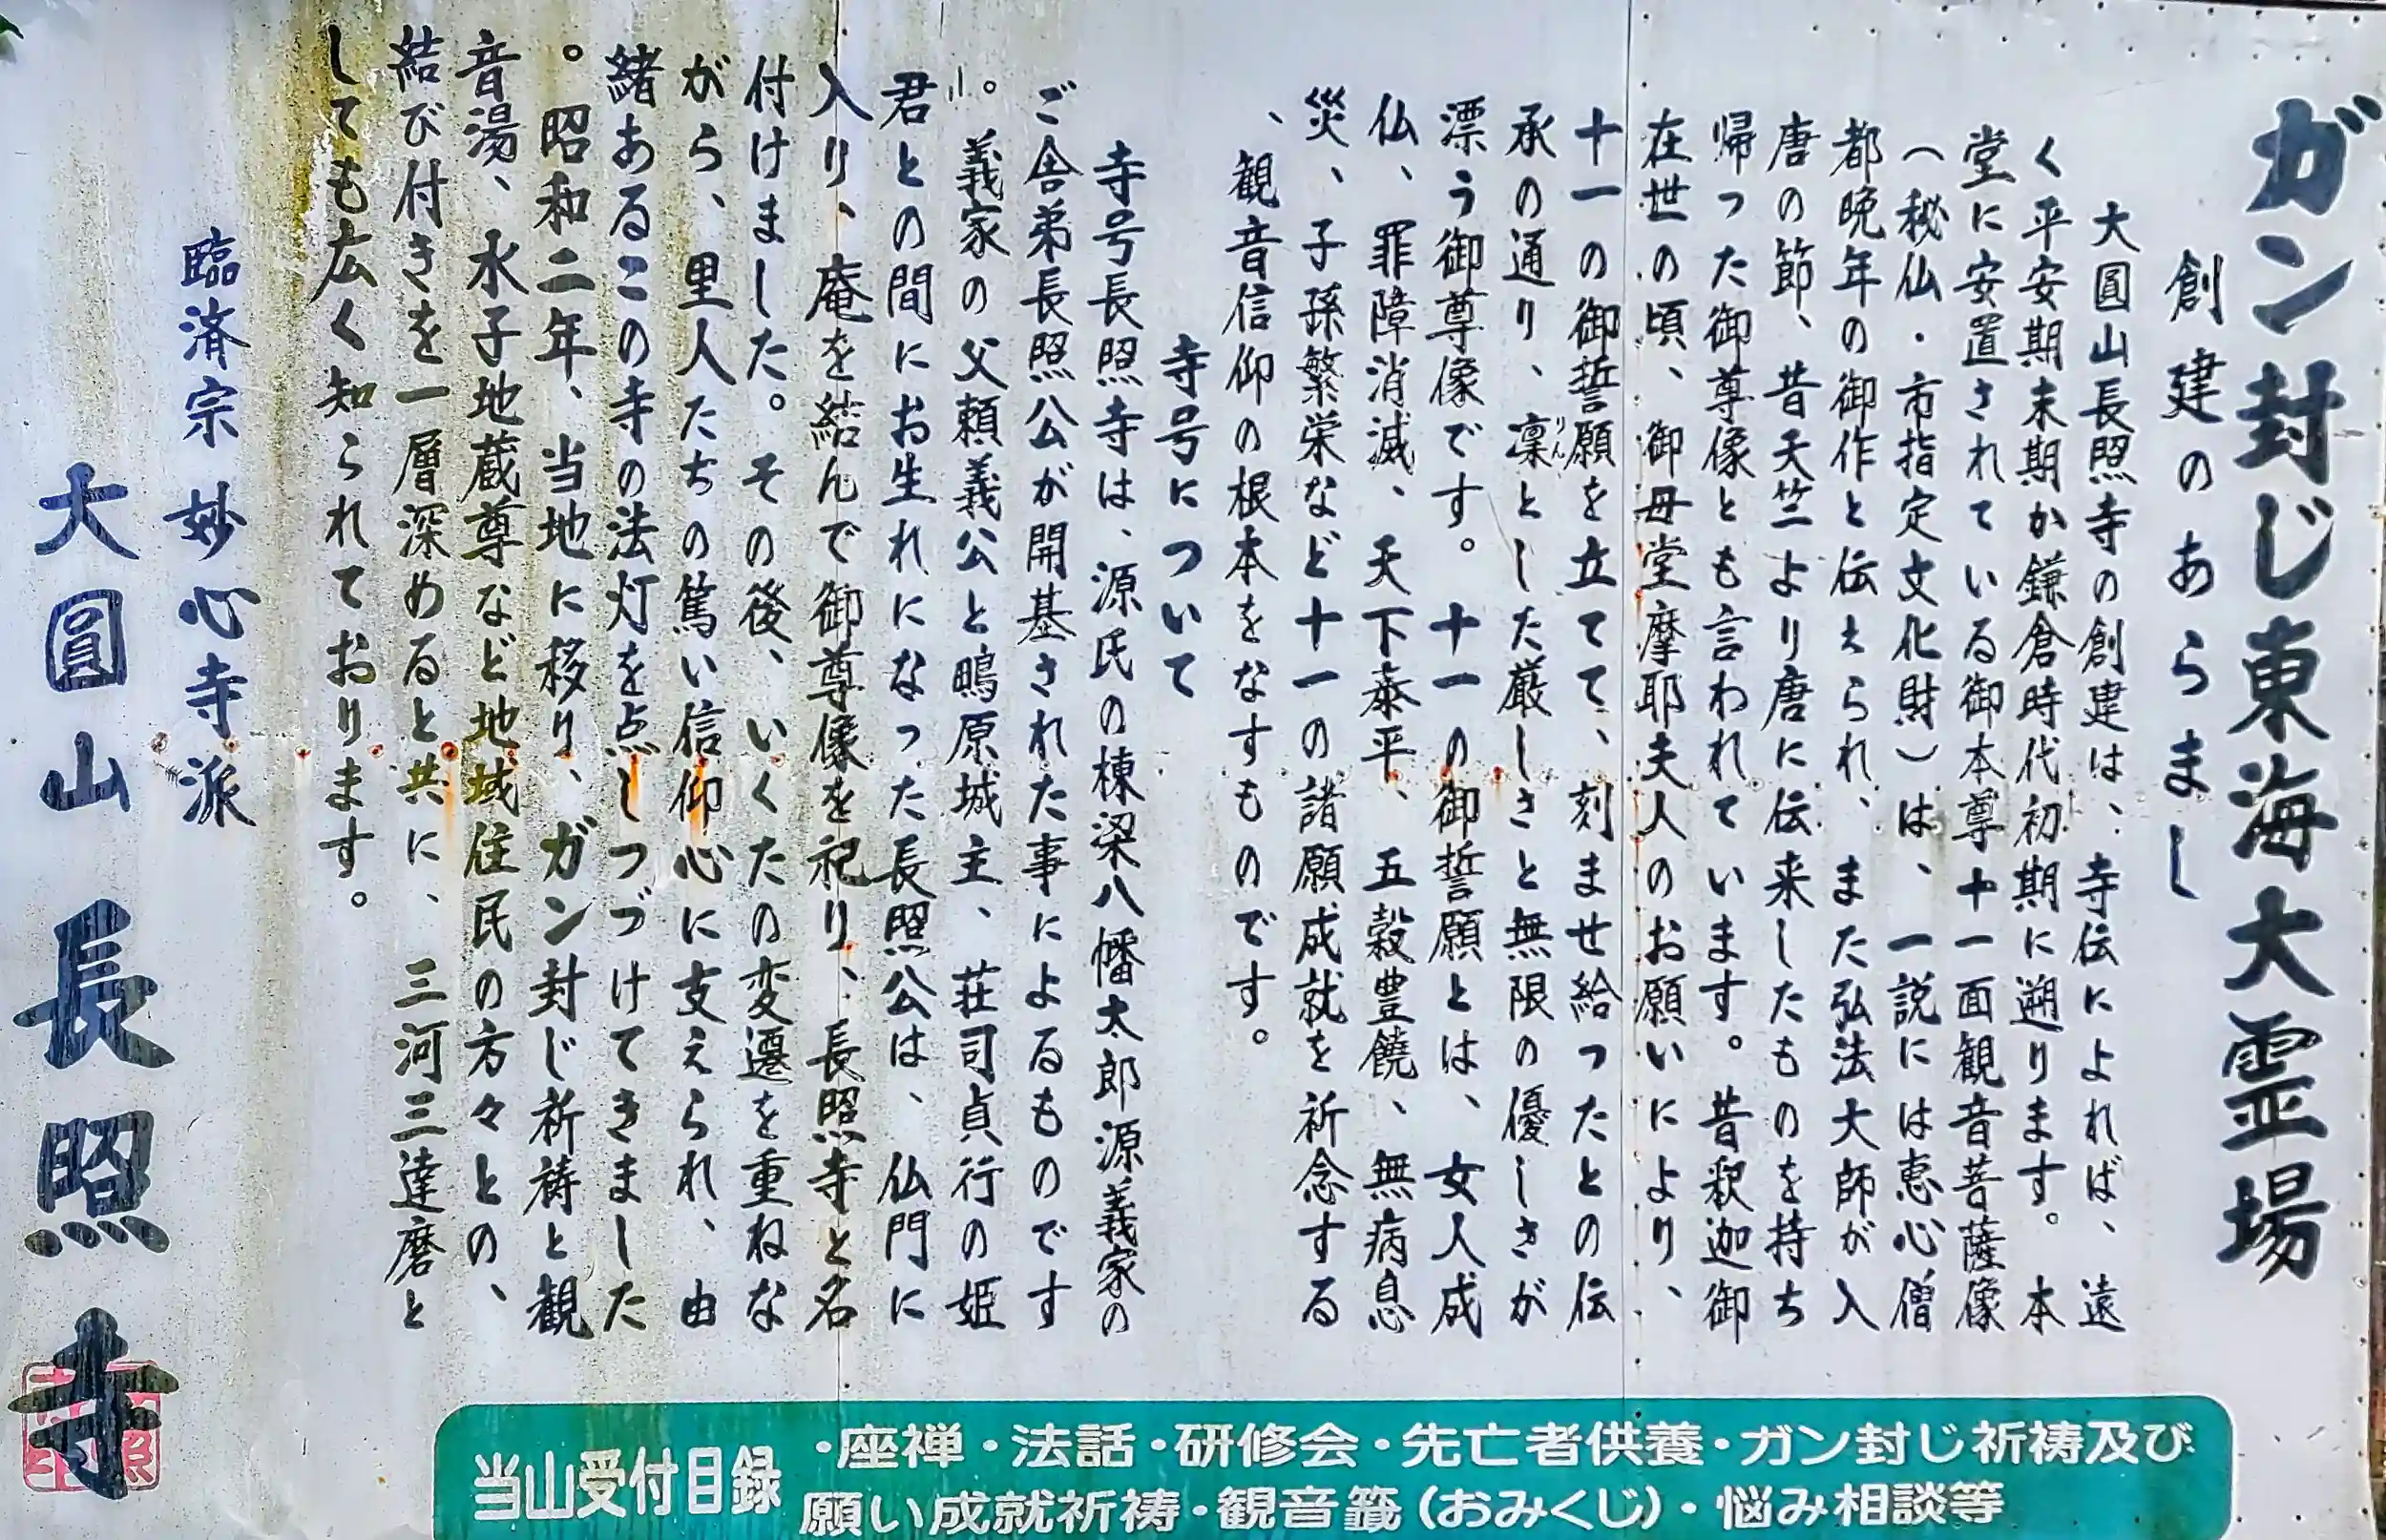 ガン封じ東海大霊場
創建のあらまし
大圓山長照寺の創建は、寺伝によれば、遠
く平安期末期か鎌倉時代初期に遡ります。本
堂に安置されている御本尊十一面観音菩薩像
（秘仏・市指定文化財）は、一説には恵心僧
都晩年の御作と伝えられ、また弘法大師が入
唐の節、昔天竺より唐に伝来したものを持ち
帰った御尊像とも言われています。昔釈迦御
在世の頃、御母堂摩耶夫人のお願いにより、
十一の御誓願を立てて、刻ませ給ったとの伝
承の通り、凛とした厳しさと無限の優しさが
りん
漂う御尊像です。十一の御誓願とは、女人成
仏、罪障消滅、天下泰平、五穀豊饒、無病息
災、子孫繁栄など十一の諸願成就を祈念する
、観音信仰の根本をなすものです。
寺号について
寺号長照寺は、源氏の棟梁八幡太郎源義家の
ご舎弟長照公が開基された事によるものです
。義家の父頼義公と鴫原城主、荘司貞行の姫
君との間にお生れになった長照公は、仏門に
入り、庵を結んで御尊像を祀り、長照寺と名
付けました。その後、いくたの変遷を重ねな
がら、里人たちの篤い信仰心に支えられ、由
緒あるこの寺の法灯を点しつづけてきました
。昭和二年、当地に移り、ガン封じ祈祷と観
音湯、水子地蔵尊など地域住民の方々との、
結び付きを一層深めると共に、三河三達磨と
しても広く知られております。
臨済宗 妙心寺派
大圓山 長照寺
当山受付目録
・座禅・法話・研修会・先亡者供養・ガン封じ祈祷及び
願い成就祈祷・観音籤（おみくじ）・悩み相談等